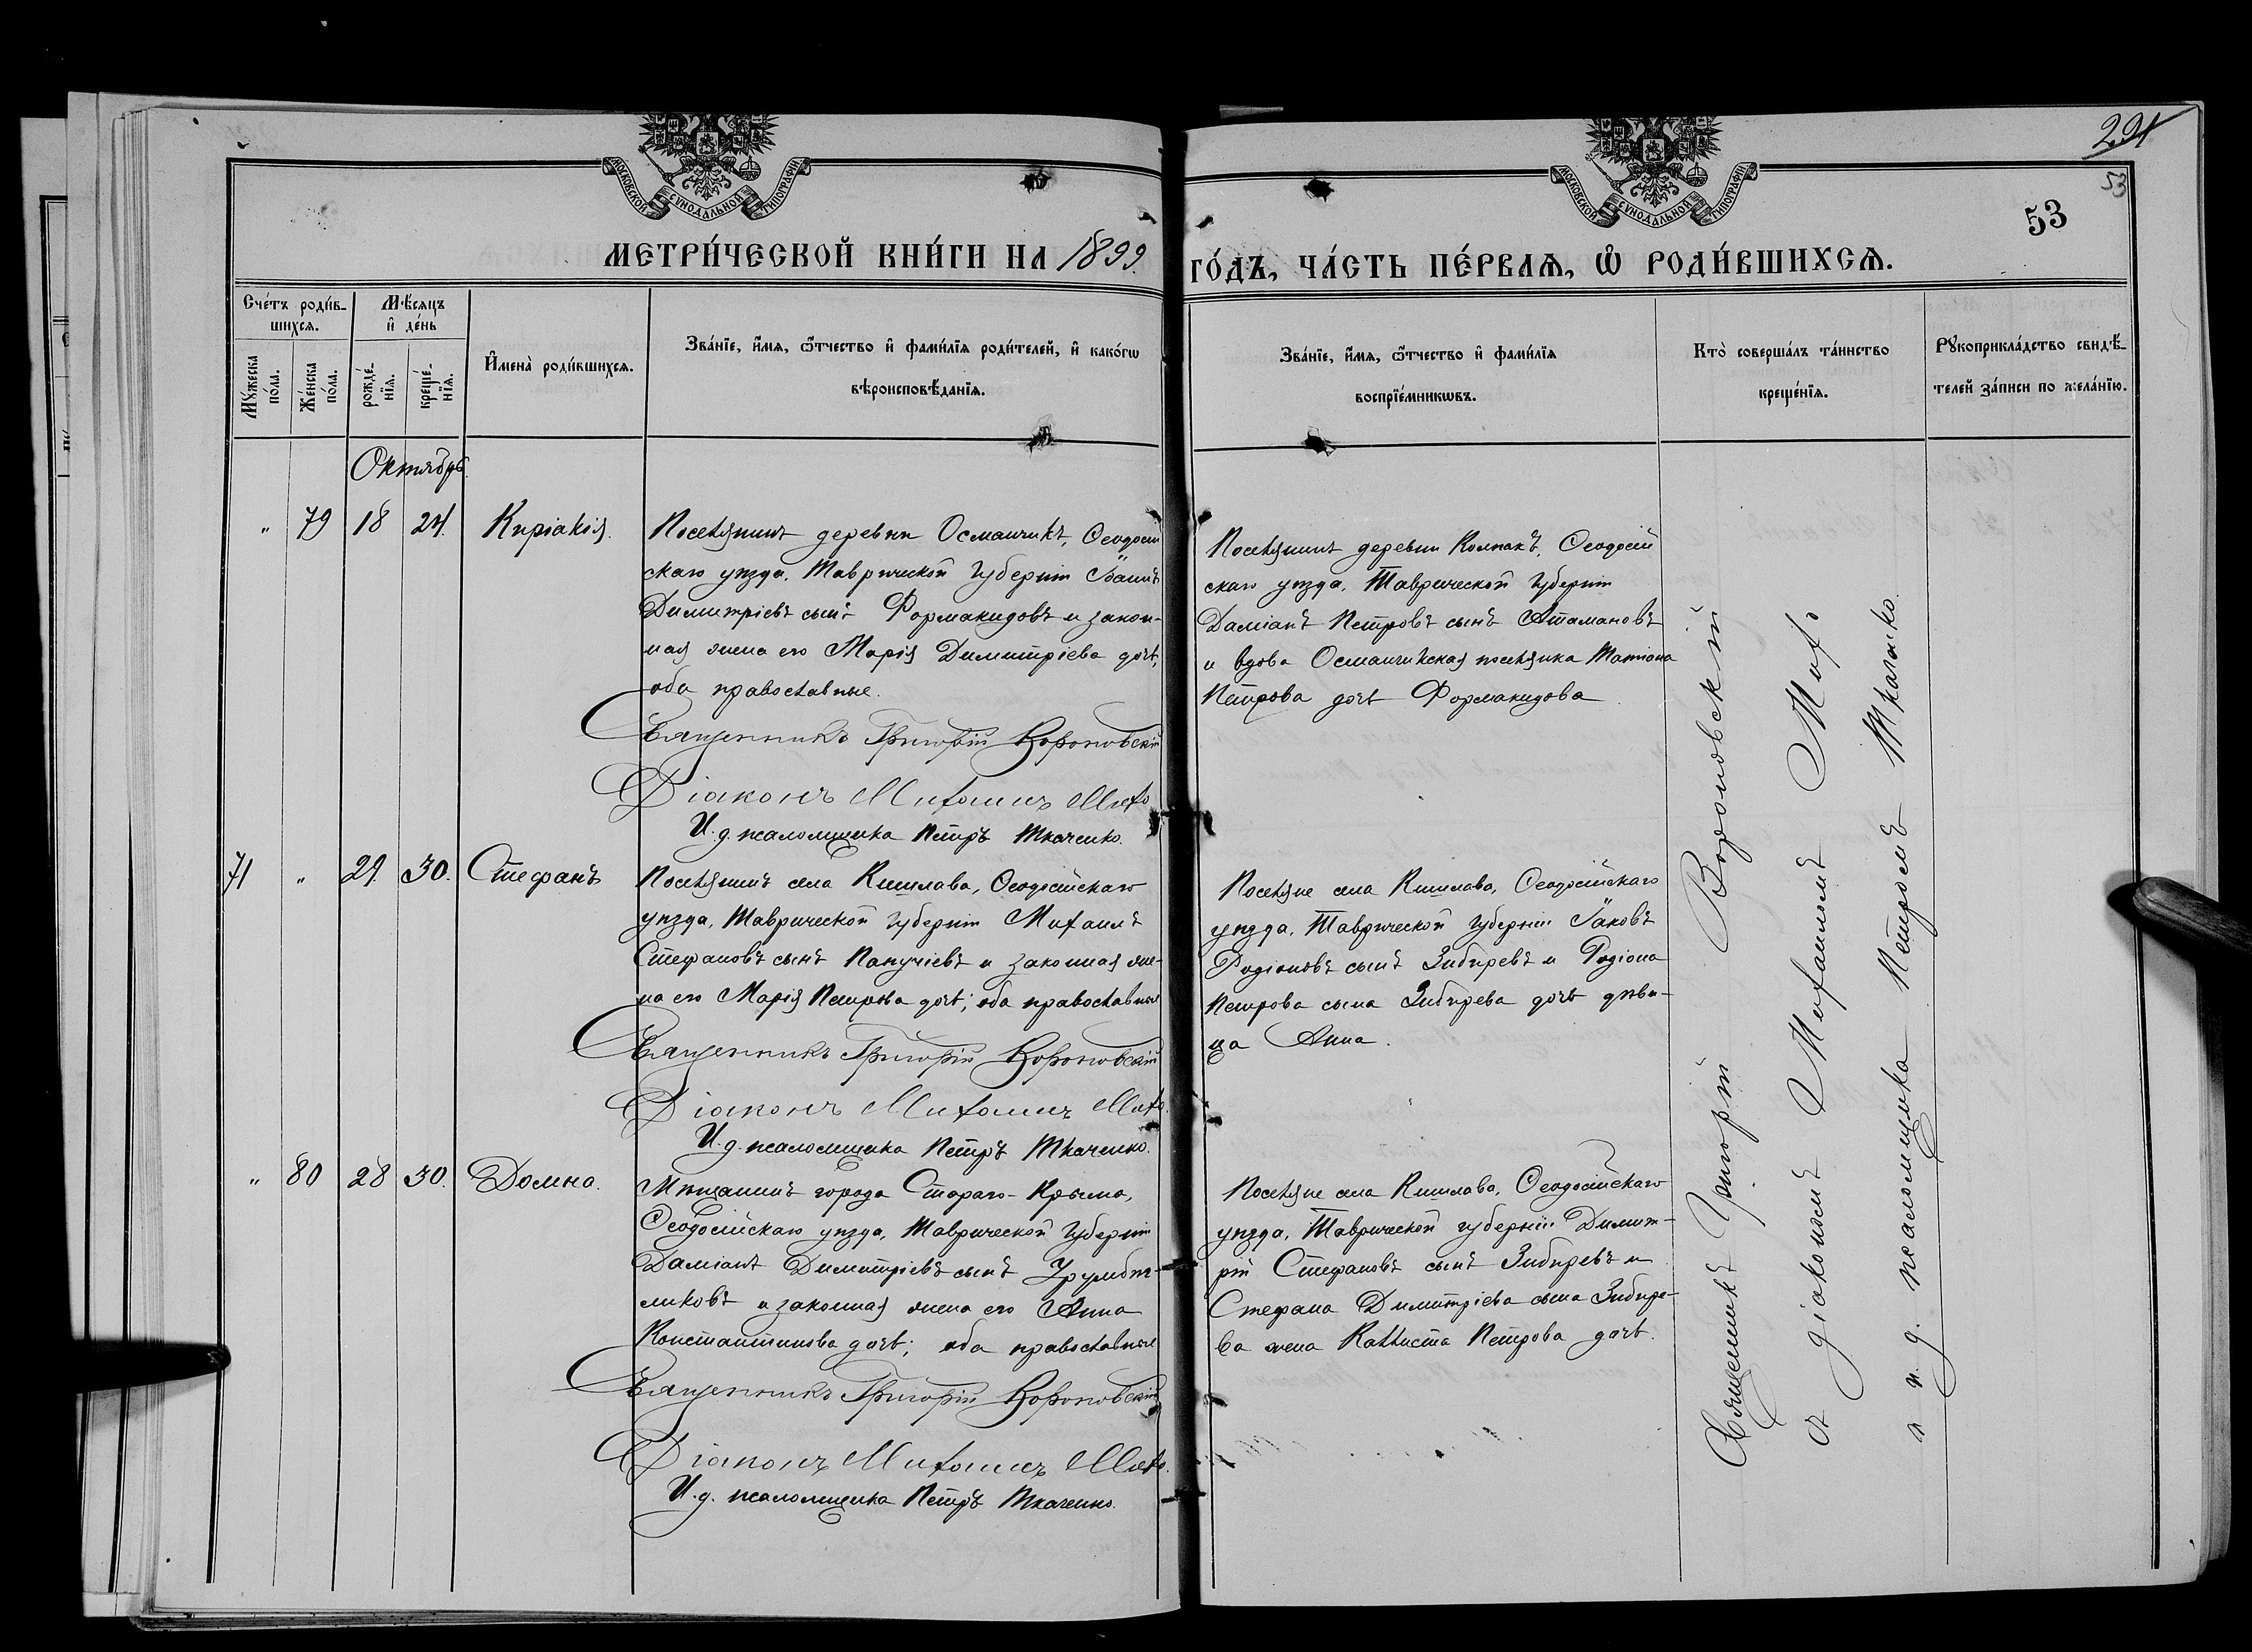 291
53
53
МОСКОВСКОЙ СУНОДАЛЬНОЙ ТИПОГРАФИИ
МОСКОВСКОЙ СУНОДАЛЬНОЙ ТИПОГРАФИИ
МЕТРИ́ЧЕСКОЙ КНИ́ГИ НА 1899 ГО́ДЪ, ЧА́СТЬ ПЕ́РВАѦ, Ѡ҆ РОДИ́ВШИХСѦ.
Сче́тъ роди́в-
шихсѧ.
Мꙋ́жеска по́ла.
Же́нска по́ла.
Мѣ́сѧцъ
и҆ де́нь
рожде́-
нїѧ.
креще́-
нїѧ.
И҆мена̀ роди́вшихсѧ.
Зва́нїе, и҆́мѧ, ѻ҆́тчество и҆ фами́лїѧ роди́телей, и҆ како́гѡ
вѣроисповѣ́данїѧ.
Зва́нїе, и҆́мѧ, ѻ҆́тчество и҆ фами́лїѧ
воспрїе́мникѡвъ.
Кто̀ соверша́лъ та́инство
креще́нїѧ.
Рꙋкоприкла́дство свидѣ́-
телей за́писи по жела́нїю.
Октябрь.
" 79 18 24. Киріакія.
Поселянинъ деревни Османчикъ, Ѳеодосій
скаго уѣзда, Таврической губерніи Іоаннъ
Димитріевъ сынъ Формакидовъ и закон-
ная жена его Марія Димитріева дочь,
оба православные.
Священникъ Григорій Вороновскій
Діаконъ Михаилъ Махо
И. д. псаломщика Петръ Ткаченко.
Поселянинъ деревни Колпакъ, Ѳеодосій
скаго уѣзда, Таврической губерніи
Даміанъ Петровъ сынъ Атамановъ
и вдова Османчикская поселянка Татіана
Петрова дочь Формакидова
71 " 29. 30. Стефанъ
Поселянинъ села Кишлава, Ѳеодосійскаго
уѣзда, Таврической губерніи Михаилъ
Стефановъ сынъ Панучіевъ и законная же-
на его Марія Петрова дочь; оба православные
Священникъ Григорій Вороновскій
Діаконъ Михаилъ Махо.
И. д. псаломщика Петръ Ткаченко.
Поселяне села Кишлава, Ѳеодосійскаго
уѣзда, Таврической губерніи Іаковъ
Родіоновъ сынъ Зибиревъ и Родіона
Петрова сына Зибирева дочь дѣви-
ца Анна.
" 80 28 30. Домна.
Мѣщанинъ города Стараго-Крыма,
Ѳеодосійскаго уѣзда, Таврической губерніи
Даміанъ Димитріевъ сынъ
и законная жена его Анна
Константинова дочь; оба православные
Священникъ Григорій Вороновскій
Діаконъ Михаилъ Махо.
И. д. псаломщика Петръ Ткаченко.
Поселяне села Кишлава, Ѳеодосійскаго
уѣзда, Таврической губерніи Димит-
рій Стефановъ сынъ Зибиревъ и
Стефана Димитріева сына Зибире-
ва жена Каллиста Петрова дочь.
Священникъ Григорій Вороновскій
съ діакономъ Михаиломъ Махо
и и. д. псаломщика Петромъ Ткаченко.